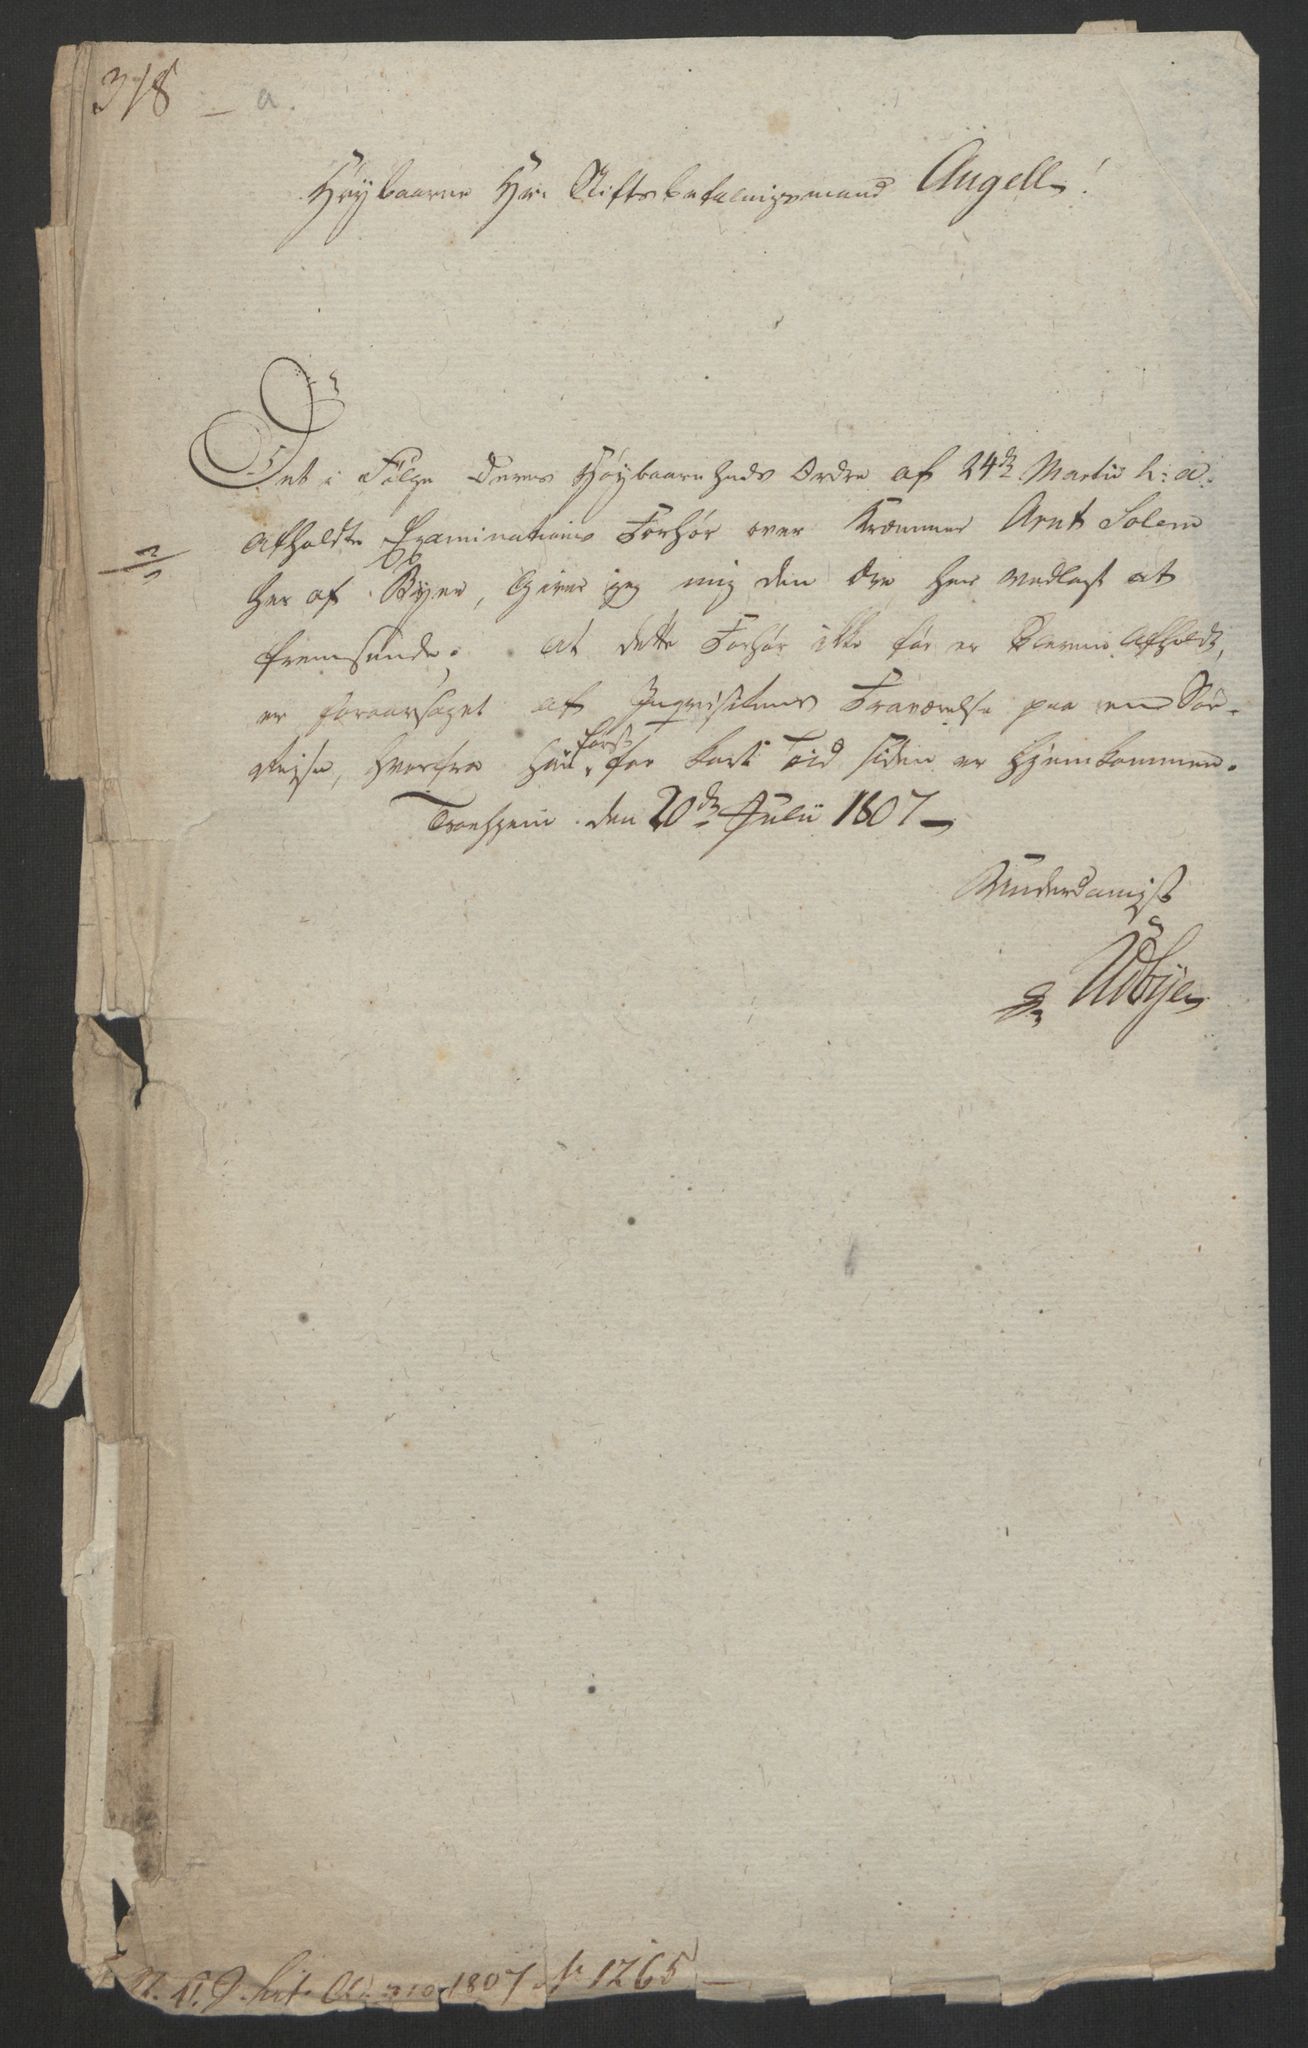 318 — a.
Høybaarne Hr: Stiftsbefalingsmand Angell!
Det i Følge Deres Høybaarenheds Ordre af 24de Martii h: a:
afholdte Examinations Forhør over Kræmmer Arnt Solem
her af Byen, giver jeg mig den Ære her vedlagt at
fremsende. At dette Forhør ikke før er bleven afholdt,
er foraarsaget af Inqvisitens Fraværelse paa en Søe-
Rejse, hvorfra han først for kort Tid siden er hjemkommen.
Tronhjem den 20de Julii 1807 —
Underdanigst
Udbye
1807 No 1265 —